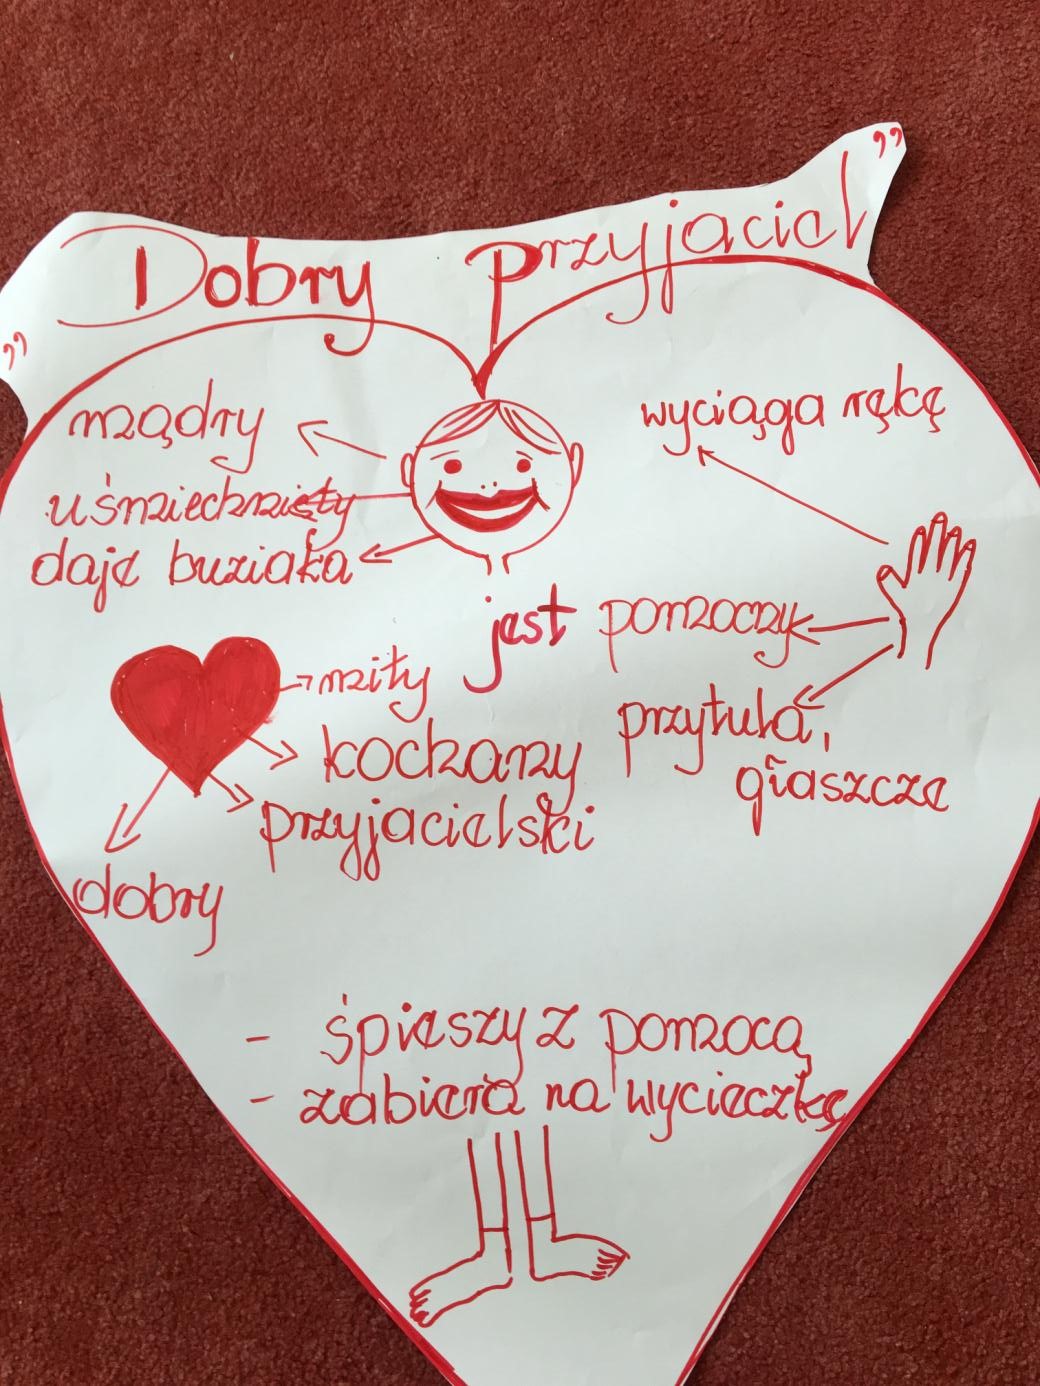 „Dobry przyjaciel”
mądry
uśmiechnięty
daje buziaka
wyciąga rękę
jest pomocny
przytula,
głaszcze
miły
kochany
przyjacielski
dobry
- śpieszy z pomocą
- zabiera na wycieczkę